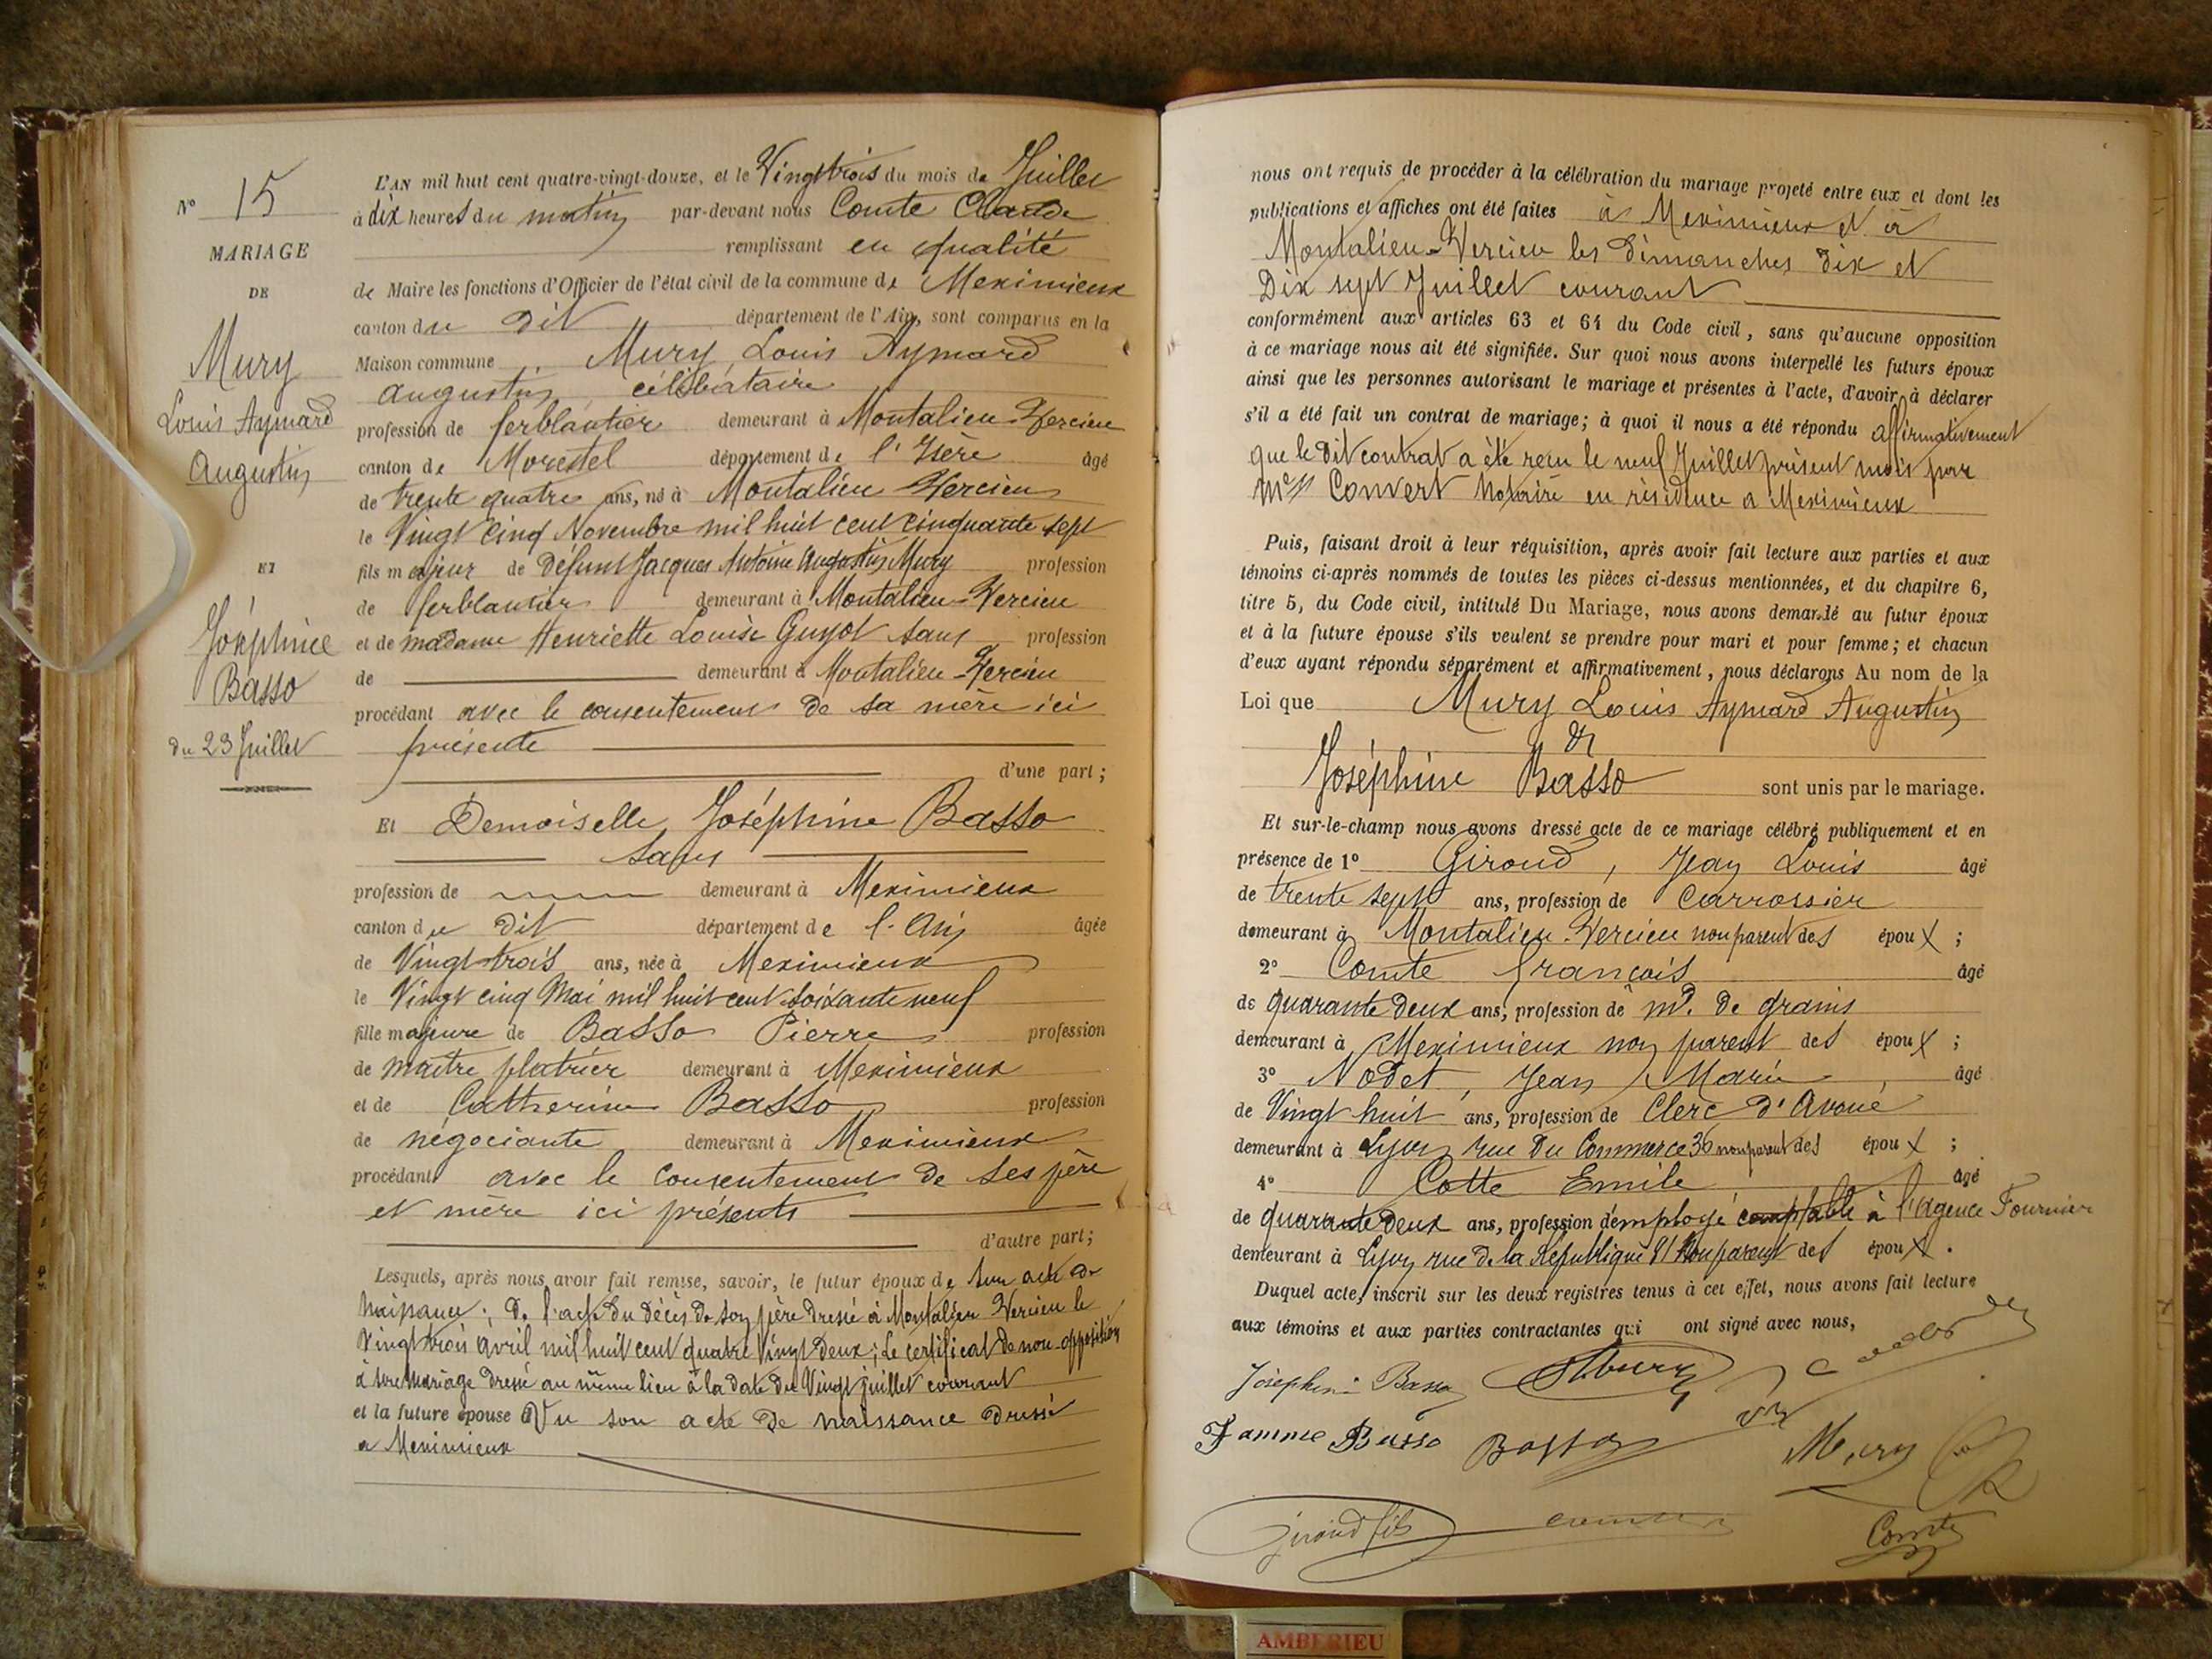 N° 15
MARIAGE
DE
Mury
Louis Aymard
Augustin
ET
Joséphine
Basso
du 23 Juillet
L'AN mil huit cent quatre-vingt-douze, et le Vingt trois du mois de Juillet
à dix heures du matin par-devant nous Comte Claude
remplissant en qualité
de Maire les fonctions d'Officier de l'état civil de la commune de Meximieux
canton du dit département de l'Ain, sont comparus en la
Maison commune Mury Louis Aymard
Augustin célibataire
profession de ferblantier demeurant à Montalieu-Vercieu
canton de Morestel département de l'Isère âgé
de trente quatre ans, né à Montalieu Vercieu
le Vingt cinq Novembre mil huit cent cinquante sept
fils majeur de défunt Jacques Antoine Augustin Mury profession
de ferblantier demeurant à Montalieu-Vercieu
et de madame Henriette Louise Guyot sans profession
de demeurant à Montalieu-Vercieu
procédant avec le consentement de sa mère ici
présente
d'une part;
Et Demoiselle Joséphine Basso
sans
profession de demeurant à Meximieux
canton du dit département de l'Ain âgée
de Vingt trois ans, née à Meximieux
le Vingt cinq Mai mil huit cent soixante neuf
fille majeure de Basso Pierre profession
de maître platrier demeurant à Meximieux
et de Catherine Basso profession
de négociante demeurant à Meximieux
procédant avec le consentement de ses père
et mère ici présents
d'autre part;
Lesquels, après nous avoir fait remise, savoir, le futur époux de son acte de
naissance; de l'acte du décès de son père dressé à Montalieu Vercieu le
Vingt trois avril mil huit cent quatre Vingt Deux; le certificat de non-opposition
à son mariage dressé au même lieu à la date du Vingt juillet courant
et la future épouse Vu son acte de naissance dressé
a Meximieux
nous ont requis de procéder à la célébration du mariage projeté entre eux et dont les
publications et affiches ont été faites à Meximieux et à
Montalieu-Vercieu les dimanches dix et
Dix sept Juillet courant
conformément aux articles 63 et 64 du Code civil, sans qu'aucune opposition
à ce mariage nous ait été signifiée. Sur quoi nous avons interpellé les futurs époux
ainsi que les personnes autorisant le mariage et présentes à l'acte, d'avoir à déclarer
s'il a été fait un contrat de mariage; à quoi il nous a été répondu affirmativement
que le dit contrat a été reçu le neuf Juillet présent mois par
Me Convert Notaire en résidence a Meximieux
Puis, faisant droit à leur réquisition, après avoir fait lecture aux parties et aux
témoins ci-après nommés de toutes les pièces ci-dessus mentionnées, et du chapitre 6,
titre 5, du Code civil, intitulé Du Mariage, nous avons demandé au futur époux
et à la future épouse s'ils veulent se prendre pour mari et pour femme; et chacun
d'eux ayant répondu séparément et affirmativement, nous déclarons Au nom de la
Loi que Mury Louis Aymard Augustin
et
Joséphine Basso sont unis par le mariage.
Et sur-le-champ nous avons dressé acte de ce mariage célébré publiquement et en
présence de 1° Giroud, Jean Louis âgé
de trente sept ans, profession de Carrossier
demeurant à Montalieu-Vercieu non parent des époux;
2° Comte François âgé
de quarante deux ans, profession de md. de grains
demeurant à Meximieux non parent des époux;
3° Nodet, Jean Marie âgé
de Vingt huit ans, profession de Clerc d'Avoué
demeurant à Lyon rue Du Commerce 36 non parent des époux;
4° Cotte Emile âgé
de quarante deux ans, profession d'employé comptable à l'agence Fournier
demeurant à Lyon rue de la République 81 Non parent des époux.
Duquel acte, inscrit sur les deux registres tenus à cet effet, nous avons fait lecture
aux témoins et aux parties contractantes qui ont signé avec nous,
Joséphine Basso
Famme Basso Basso Mury
Giroud fils Comte
AMBERIEU